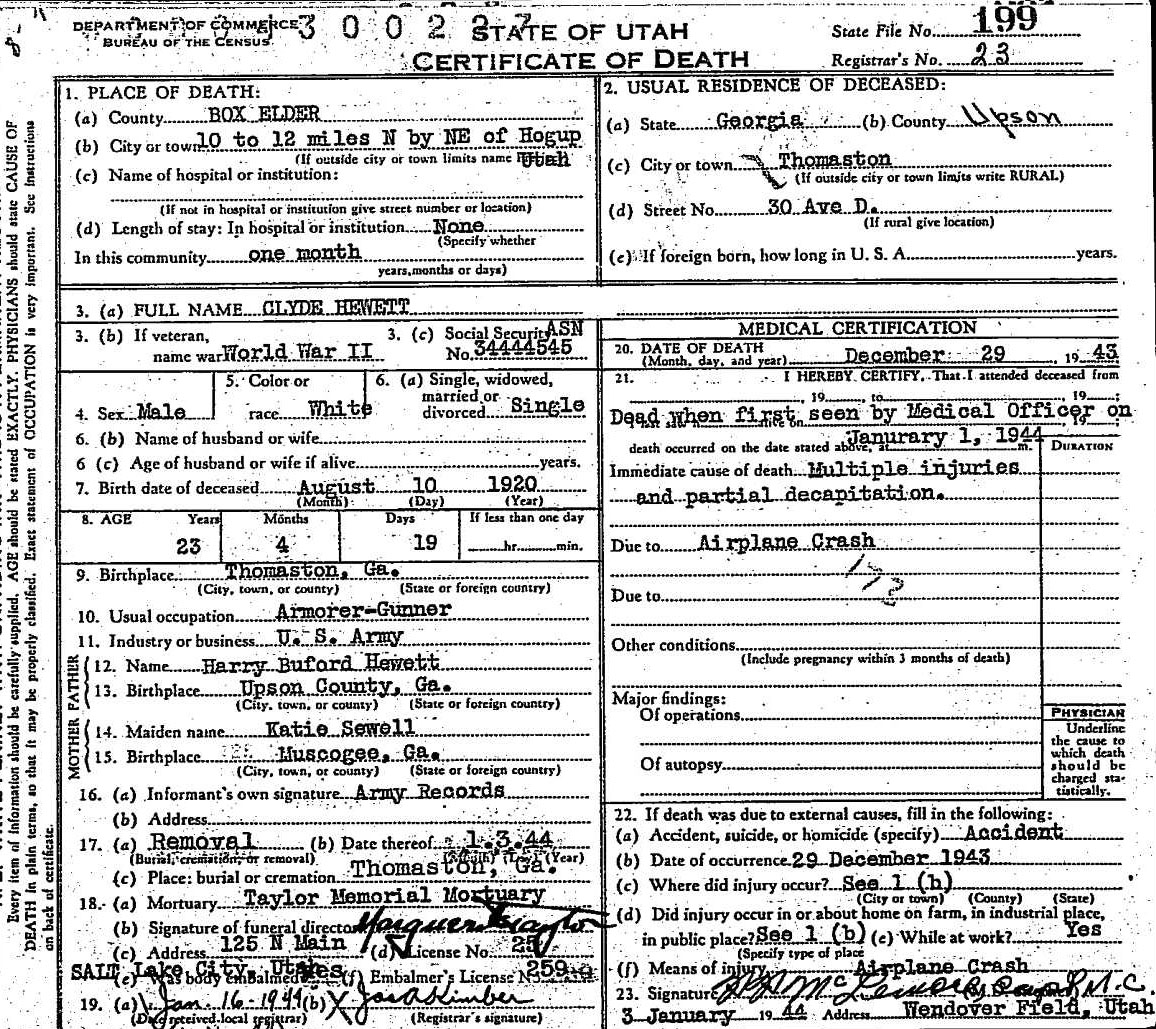 DEPARTMENT OF COMMERCE
BUREAU OF THE CENSUS
STATE OF UTAH
CERTIFICATE OF DEATH
State File No. 199
Registrar's No. 23
1. PLACE OF DEATH:
(a) County BOX ELDER
(b) City or town 10 to 12 miles N by NE of Hogup
(If outside city or town limits name Utah
(c) Name of hospital or institution:
(If not in hospital or institution give street number or location)
(d) Length of stay: In hospital or institution None
(Specify whether
In this community one month
years, months or days)
2. USUAL RESIDENCE OF DECEASED:
(a) State Georgia (b) County Upson
(c) City or town Thomaston
(If outside city or town limits write RURAL)
(d) Street No. 30 Ave D.
(If rural give location)
(e) If foreign born, how long in U. S. A. years.
3. (a) FULL NAME CLYDE HEWETT
3. (b) If veteran, 3. (c) Social Security ASN
name war World War II No. 34444545
4. Sex Male
5. Color or
race White
6. (a) Single, widowed,
married or
divorced Single
6. (b) Name of husband or wife
6 (c) Age of husband or wife if alive years.
7. Birth date of deceased August 10 1920
(Month) (Day) (Year)
8. AGE Years Months Days If less than one day
23 4 19 hr. min.
9. Birthplace Thomaston, Ga.
(City, town, or county) (State or foreign country)
10. Usual occupation Armorer-Gunner
11. Industry or business U. S. Army
FATHER
12. Name Harry Buford Hewett
13. Birthplace Upson County, Ga.
(City, town, or county) (State or foreign country)
MOTHER
14. Maiden name Katie Sewell
15. Birthplace Muscogee, Ga.
(City, town, or county) (State or foreign country)
16. (a) Informant's own signature Army Records
(b) Address
17. (a) Removal (b) Date thereof 1.3.44
(Burial, cremation, or removal) (Month) (Day) (Year)
(c) Place: burial or cremation Thomaston, Ga.
18. (a) Mortuary Taylor Memorial Mortuary
(b) Signature of funeral director
(c) Address 125 N Main (d) License No. 25
SALT Lake City, Utah
(e) Was body embalmed Yes (f) Embalmer's License 259
19. (a) Jan. 16-1944 (b) Jos A Kimber
(Date received local registrar) (Registrar's signature)
MEDICAL CERTIFICATION
20. DATE OF DEATH
(Month, day, and year) December 29, 1943
21. I HEREBY CERTIFY, That I attended deceased from
, 19 , to , 19 ;
Dead when first seen by Medical Officer on
Janurary 1, 1944
death occurred on the date stated above, at m. DURATION
Immediate cause of death Multiple injuries
and partial decapitation.
Due to Airplane Crash
Due to
Other conditions
(Include pregnancy within 3 months of death)
Major findings:
Of operations
Of autopsy
PHYSICIAN
Underline
the cause to
which death
should be
charged sta-
tistically.
22. If death was due to external causes, fill in the following:
(a) Accident, suicide, or homicide (specify) Accident
(b) Date of occurrence 29 December 1943
(c) Where did injury occur? See 1 (b)
(City or town) (County) (State)
(d) Did injury occur in or about home on farm, in industrial place,
in public place? See 1 (b) (e) While at work? Yes
(Specify type of place
(f) Means of injury Airplane Crash
23. Signature
3 January 19 44 Address Wendover Field, Utah
Every item of information should be carefully supplied. AGE should be stated EXACTLY. PHYSICIANS should state CAUSE OF
DEATH in plain terms, so that it may be properly classified. Exact statement of OCCUPATION is very important. See Instructions
on back of certificate.